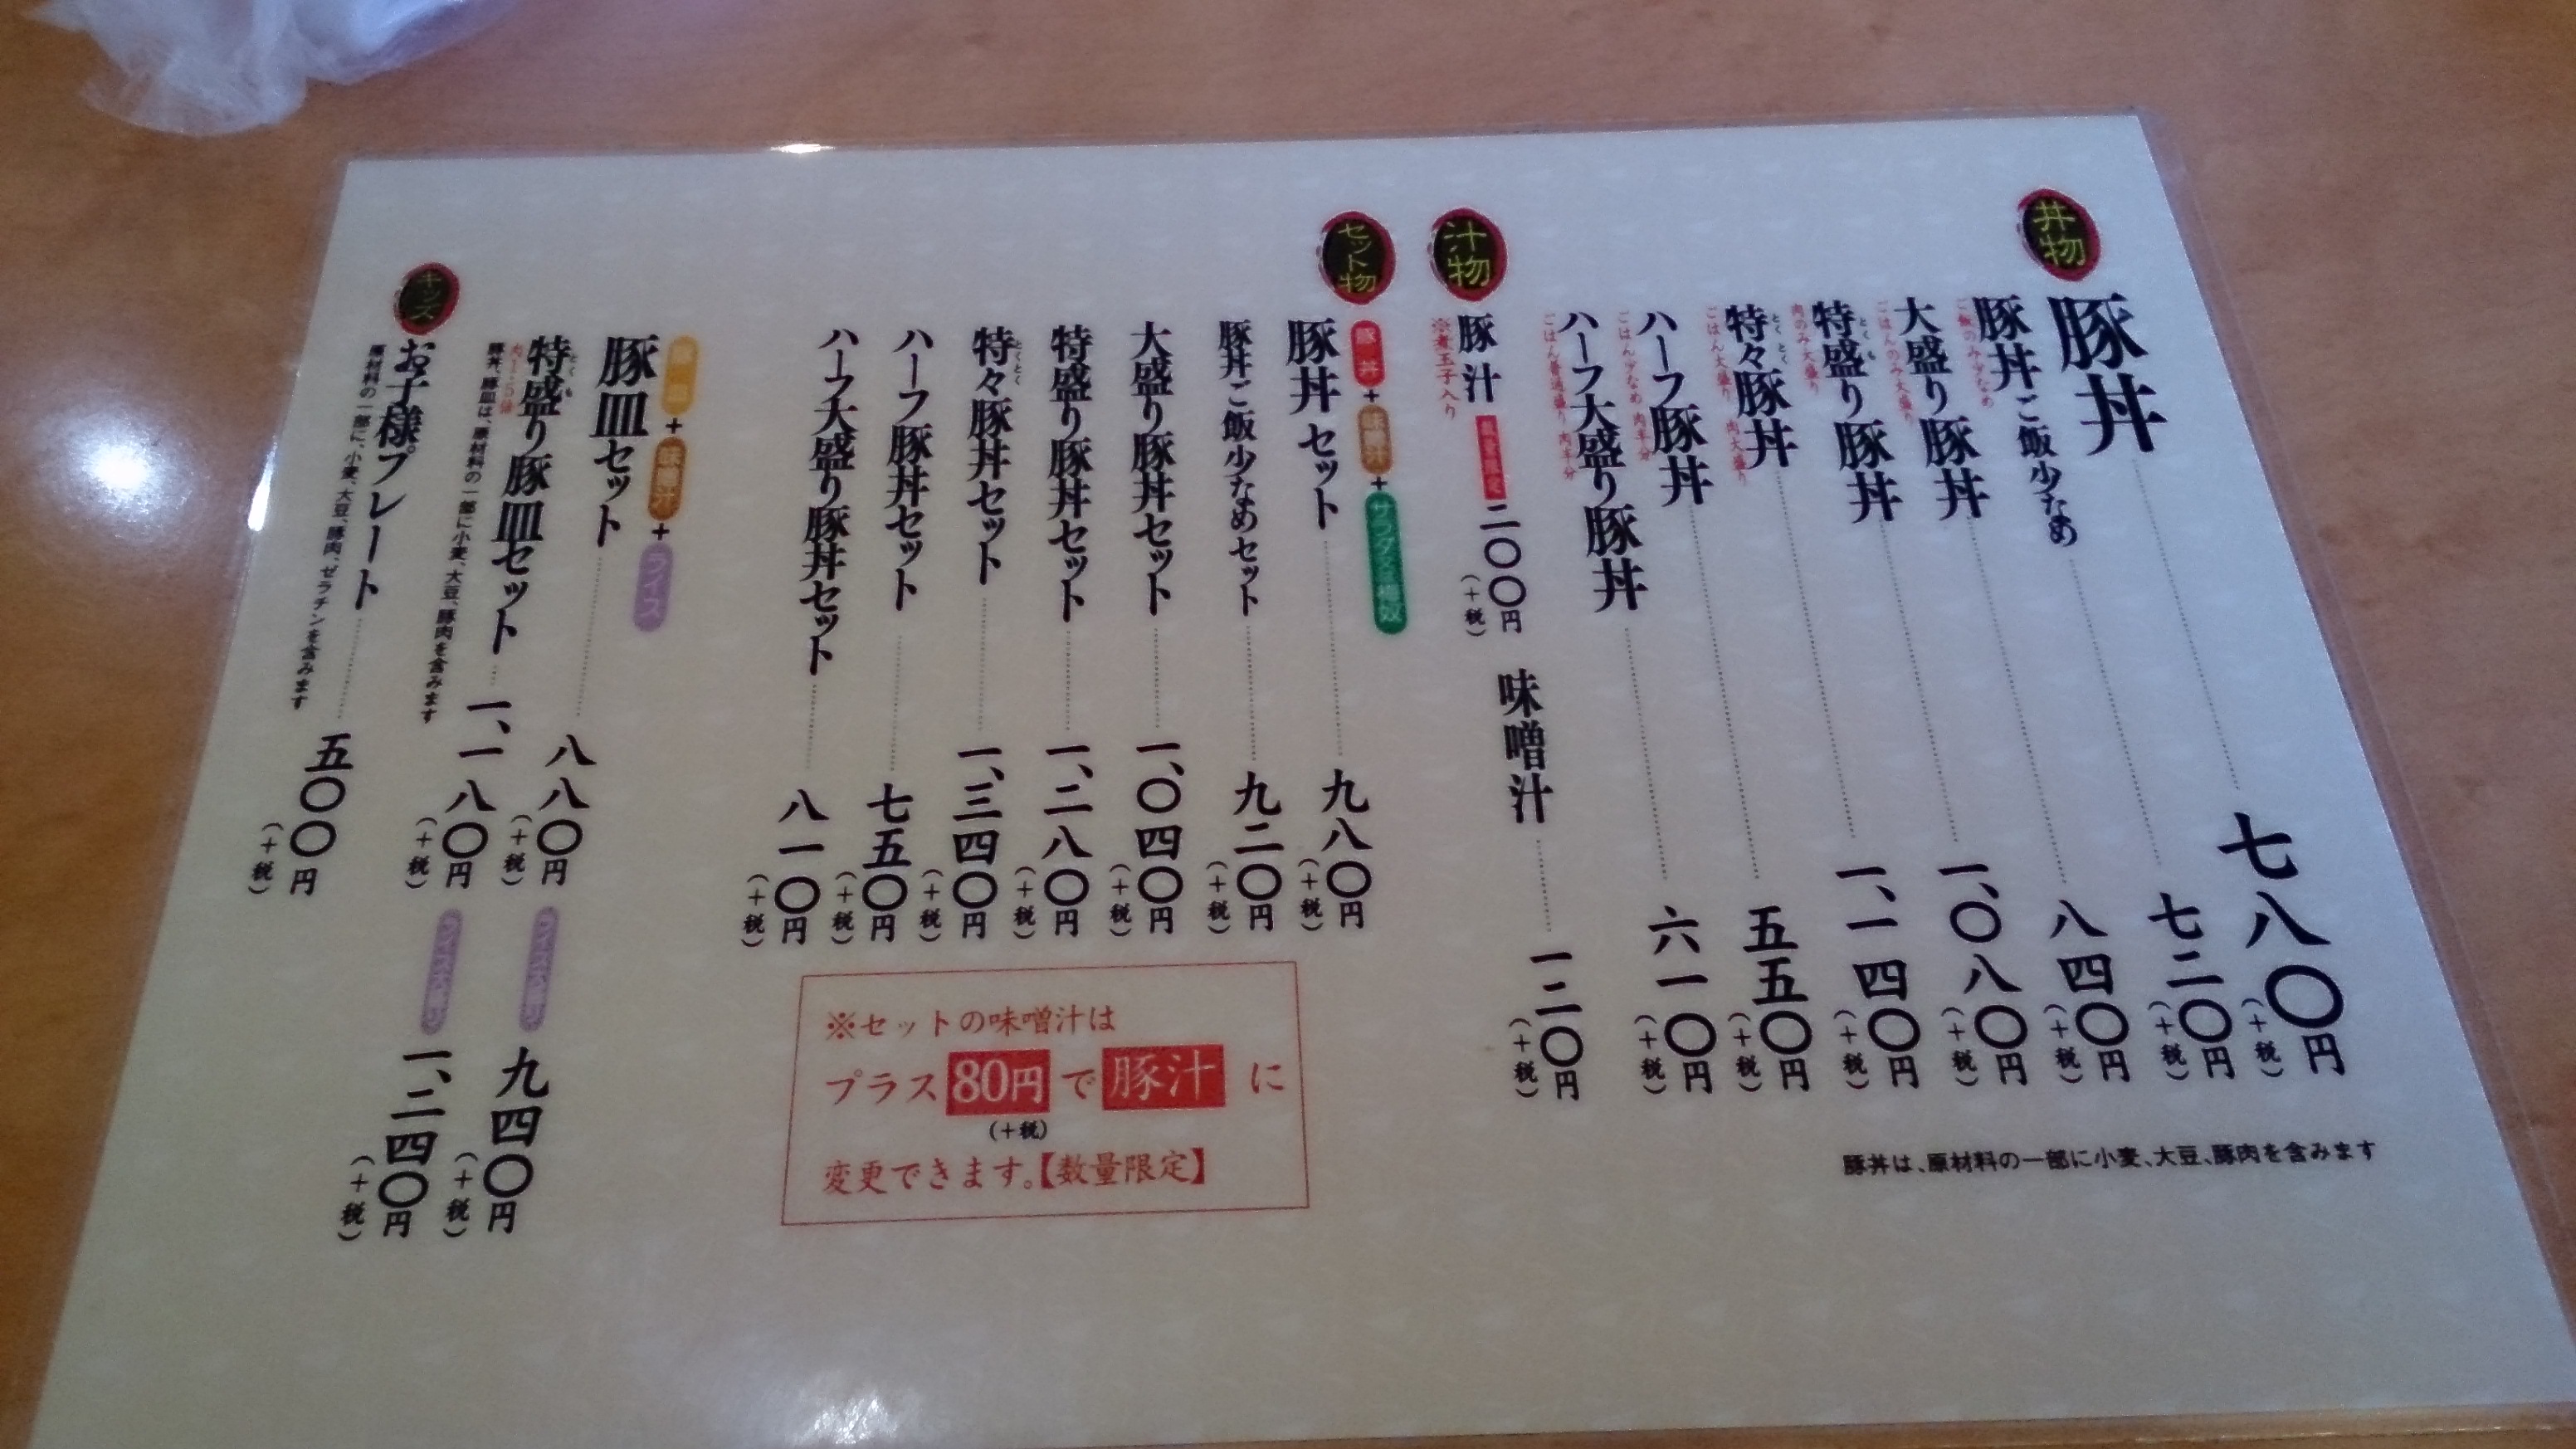 丼物
豚丼 七八〇円(+税)
豚丼ご飯少なめ 七二〇円(+税)
ご飯のみ少なめ
大盛り豚丼 八四〇円(+税)
ごはんのみ大盛り
特盛り豚丼 一、〇八〇円(+税)
肉のみ大盛り
特々豚丼 一、一四〇円(+税)
とくとく
ごはん大盛り 肉大盛り
ハーフ豚丼 五五〇円(+税)
ごはん少なめ 肉半分
ハーフ大盛り豚丼 六一〇円(+税)
ごはん普通盛り 肉半分
豚丼は、原材料の一部に小麦、大豆、豚肉を含みます
汁物
豚汁 数量限定 二〇〇円(+税)
※煮玉子入り
味噌汁 一二〇円(+税)
セット物
豚丼+味噌汁+サラダ又は
豚丼セット 九八〇円(+税)
豚丼ご飯少なめセット 九二〇円(+税)
大盛り豚丼セット 一、〇四〇円(+税)
特盛り豚丼セット 一、二八〇円(+税)
特々豚丼セット 一、三四〇円(+税)
とくとく
ハーフ豚丼セット 七五〇円(+税)
ハーフ大盛り豚丼セット 八一〇円(+税)
※セットの味噌汁は
プラス80円で豚汁に
(+税)
変更できます。【数量限定】
豚皿+味噌汁+ライス
豚皿セット 八八〇円(+税) ライス大盛り 九四〇円(+税)
特盛り豚皿セット 一、一八〇円(+税) ライス大盛り 一、二四〇円(+税)
肉1.5倍
豚丼、豚皿は、原材料の一部に小麦、大豆、豚肉を含みます
キッズ
お子様プレート 五〇〇円(+税)
原材料の一部に、小麦、大豆、豚肉、ゼラチンを含みます